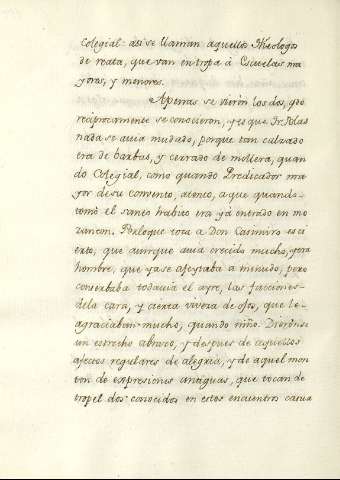 Colegial: asi se llaman aquellos Theologos
de reata, que van en tropa à Escuelas ma
yores, y menores.
Apenas se vieròn los dos, q.do
reciprocamente se conocieron, y es que Fr. Blas
nada se auia mudado, porque tan culzado
era de barbas, y cerrado de mollera, quan
do Colegial, como quando Predicador ma
yor de su convento, atento, a que quando
tomò el santo habito era yá entrado en mo
zancon. Por loque toca a Don Casimiro es ci
erto, que aunque auia crecido mucho, y era
hombre, que ya se afeytaba a menudo, pero
conserbaba todauia el ayre, las facciones
de la cara, y cierta viveza de ojos, que le
agraciaban mucho, quando niño. Dieronse
un estrecho abrazo, y despues de aquellos
afectos regulares de alegria, y de aquel mon
ton de expresiones antiguas, que tocan de
tropel dos conocidos en estos encuentros casua